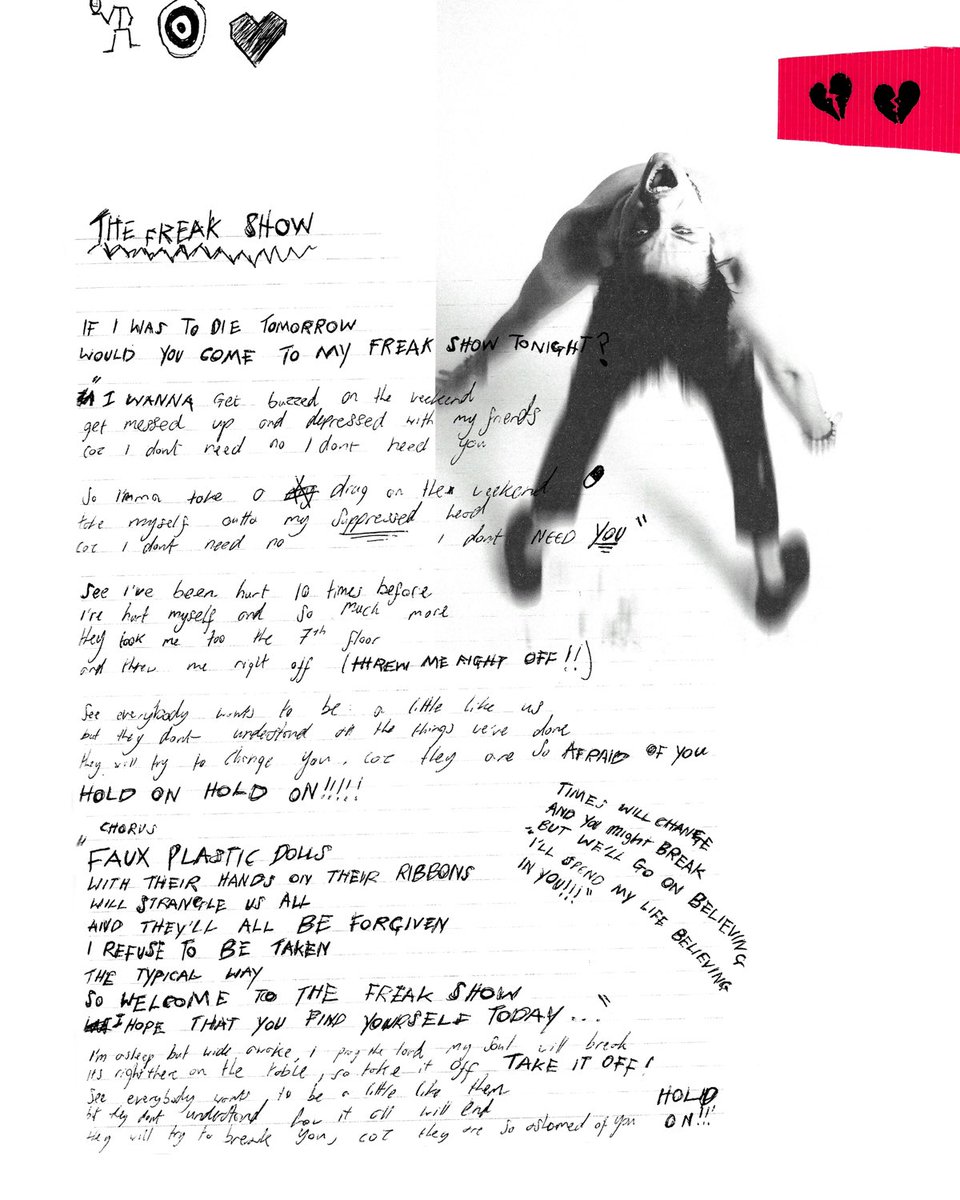 THE FREAK SHOW
IF I WAS TO DIE TOMORROW
WOULD YOU COME TO MY FREAK SHOW TONIGHT?
" I WANNA Get buzzed on the weekend
get messed up and depressed with my friends
coz I dont need no I dont need you
So Imma take a drug on the weekend
take myself outta my suppressed head
coz I dont need no I dont NEED YOU "
See I've been hurt 10 times before
I've hurt myself and so much more
they took me too the 7th floor
and threw me right off (THREW ME RIGHT OFF!!)
See everybody wants to be a little like us
but they dont understand all the things we've done
they will try to change you, coz they are so AFRAID OF YOU
HOLD ON HOLD ON!!!!!
TIMES WILL CHANGE
AND YOU Might BREAK
"BUT WE'LL GO ON BELIEVING
I'LL SPEND MY LIFE BELIEVING
IN YOU!!!"
" CHORUS
FAUX PLASTIC DOLLS
WITH THEIR HANDS ON THEIR RIBBONS
WILL STRANGLE US ALL
AND THEY'LL ALL BE FORGIVEN
I REFUSE TO BE TAKEN
THE TYPICAL WAY
SO WELCOME TO THE FREAK SHOW
I HOPE THAT YOU FIND YOURSELF TODAY... "
I'm asleep but wide awake, i pray the lord my soul will break
its right there on the table, so take it off TAKE IT OFF!
See everybody wants to be a little like them
but they dont understand how it all will end
they will try to break you, coz they are so ashamed of you
HOLD
ON!!!